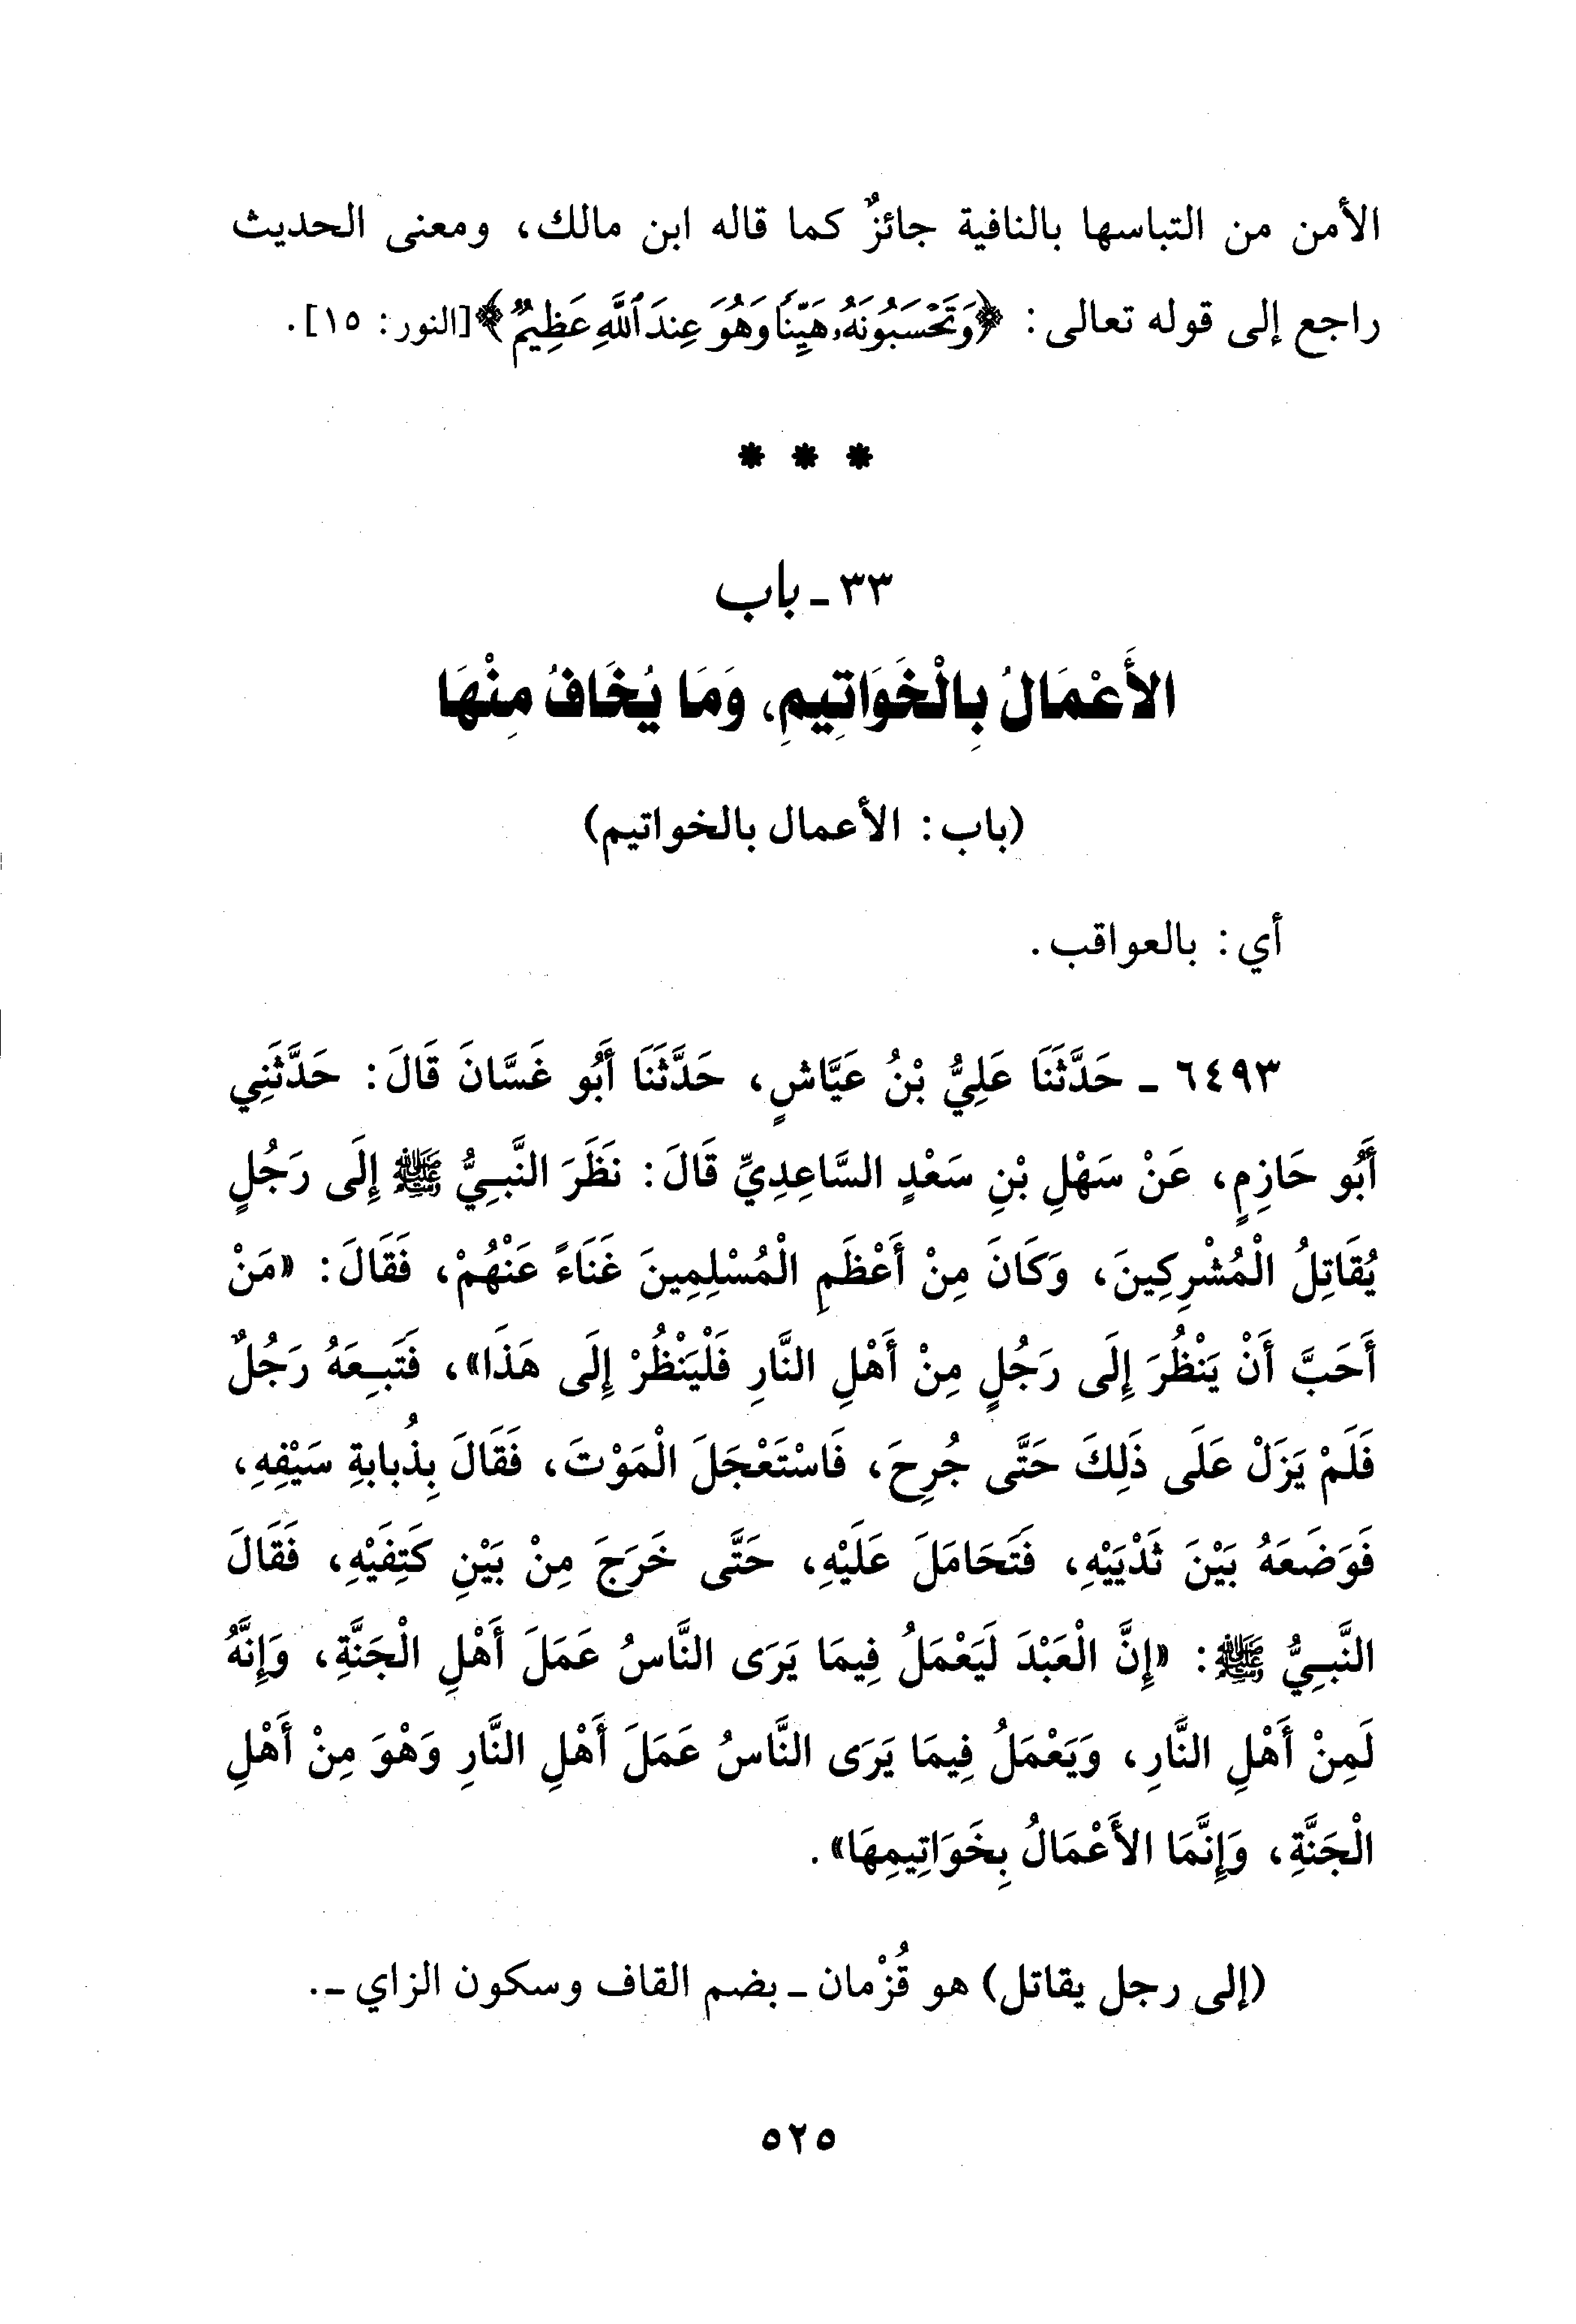 الأمن من التباسها بالنافية جائزٌ كما قاله ابن مالك، ومعنى الحديث
راجع إلى قوله تعالى: ﴿وَتَحْسَبُونَهُۥ هَيِّنًا وَهُوَ عِندَ ٱللَّهِ عَظِيمٌ﴾ [النور: ١٥].
* * *
٣٣ - باب
الأَعْمَالُ بِالْخَوَاتِيمِ، وَمَا يُخَافُ مِنْهَا
(باب: الأعمال بالخواتيم)
أي: بالعواقب.
٦٤٩٣ - حَدَّثَنَا عَلِيُّ بْنُ عَيَّاشٍ، حَدَّثَنَا أَبُو غَسَّانَ قَالَ: حَدَّثَنِي
أَبُو حَازِمٍ، عَنْ سَهْلِ بْنِ سَعْدٍ السَّاعِدِيِّ قَالَ: نَظَرَ النَّبِيُّ ﷺ إِلَى رَجُلٍ
يُقَاتِلُ الْمُشْرِكِينَ، وَكَانَ مِنْ أَعْظَمِ الْمُسْلِمِينَ غَنَاءً عَنْهُمْ، فَقَالَ: «مَنْ
أَحَبَّ أَنْ يَنْظُرَ إِلَى رَجُلٍ مِنْ أَهْلِ النَّارِ فَلْيَنْظُرْ إِلَى هَذَا»، فَتَبِعَهُ رَجُلٌ
فَلَمْ يَزَلْ عَلَى ذَلِكَ حَتَّى جُرِحَ، فَاسْتَعْجَلَ الْمَوْتَ، فَقَالَ بِذُبابةِ سَيْفِهِ،
فَوَضَعَهُ بَيْنَ ثَدْيَيْهِ، فَتَحَامَلَ عَلَيْهِ، حَتَّى خَرَجَ مِنْ بَيْنِ كَتِفَيْهِ، فَقَالَ
النَّبِيُّ ﷺ: «إِنَّ الْعَبْدَ لَيَعْمَلُ فِيمَا يَرَى النَّاسُ عَمَلَ أَهْلِ الْجَنَّةِ، وَإِنَّهُ
لَمِنْ أَهْلِ النَّارِ، وَيَعْمَلُ فِيمَا يَرَى النَّاسُ عَمَلَ أَهْلِ النَّارِ وَهْوَ مِنْ أَهْلِ
الْجَنَّةِ، وَإِنَّمَا الأَعْمَالُ بِخَوَاتِيمِهَا».
(إلى رجل يقاتل) هو قُزْمان - بضم القاف وسكون الزاي -.
٥٢٥